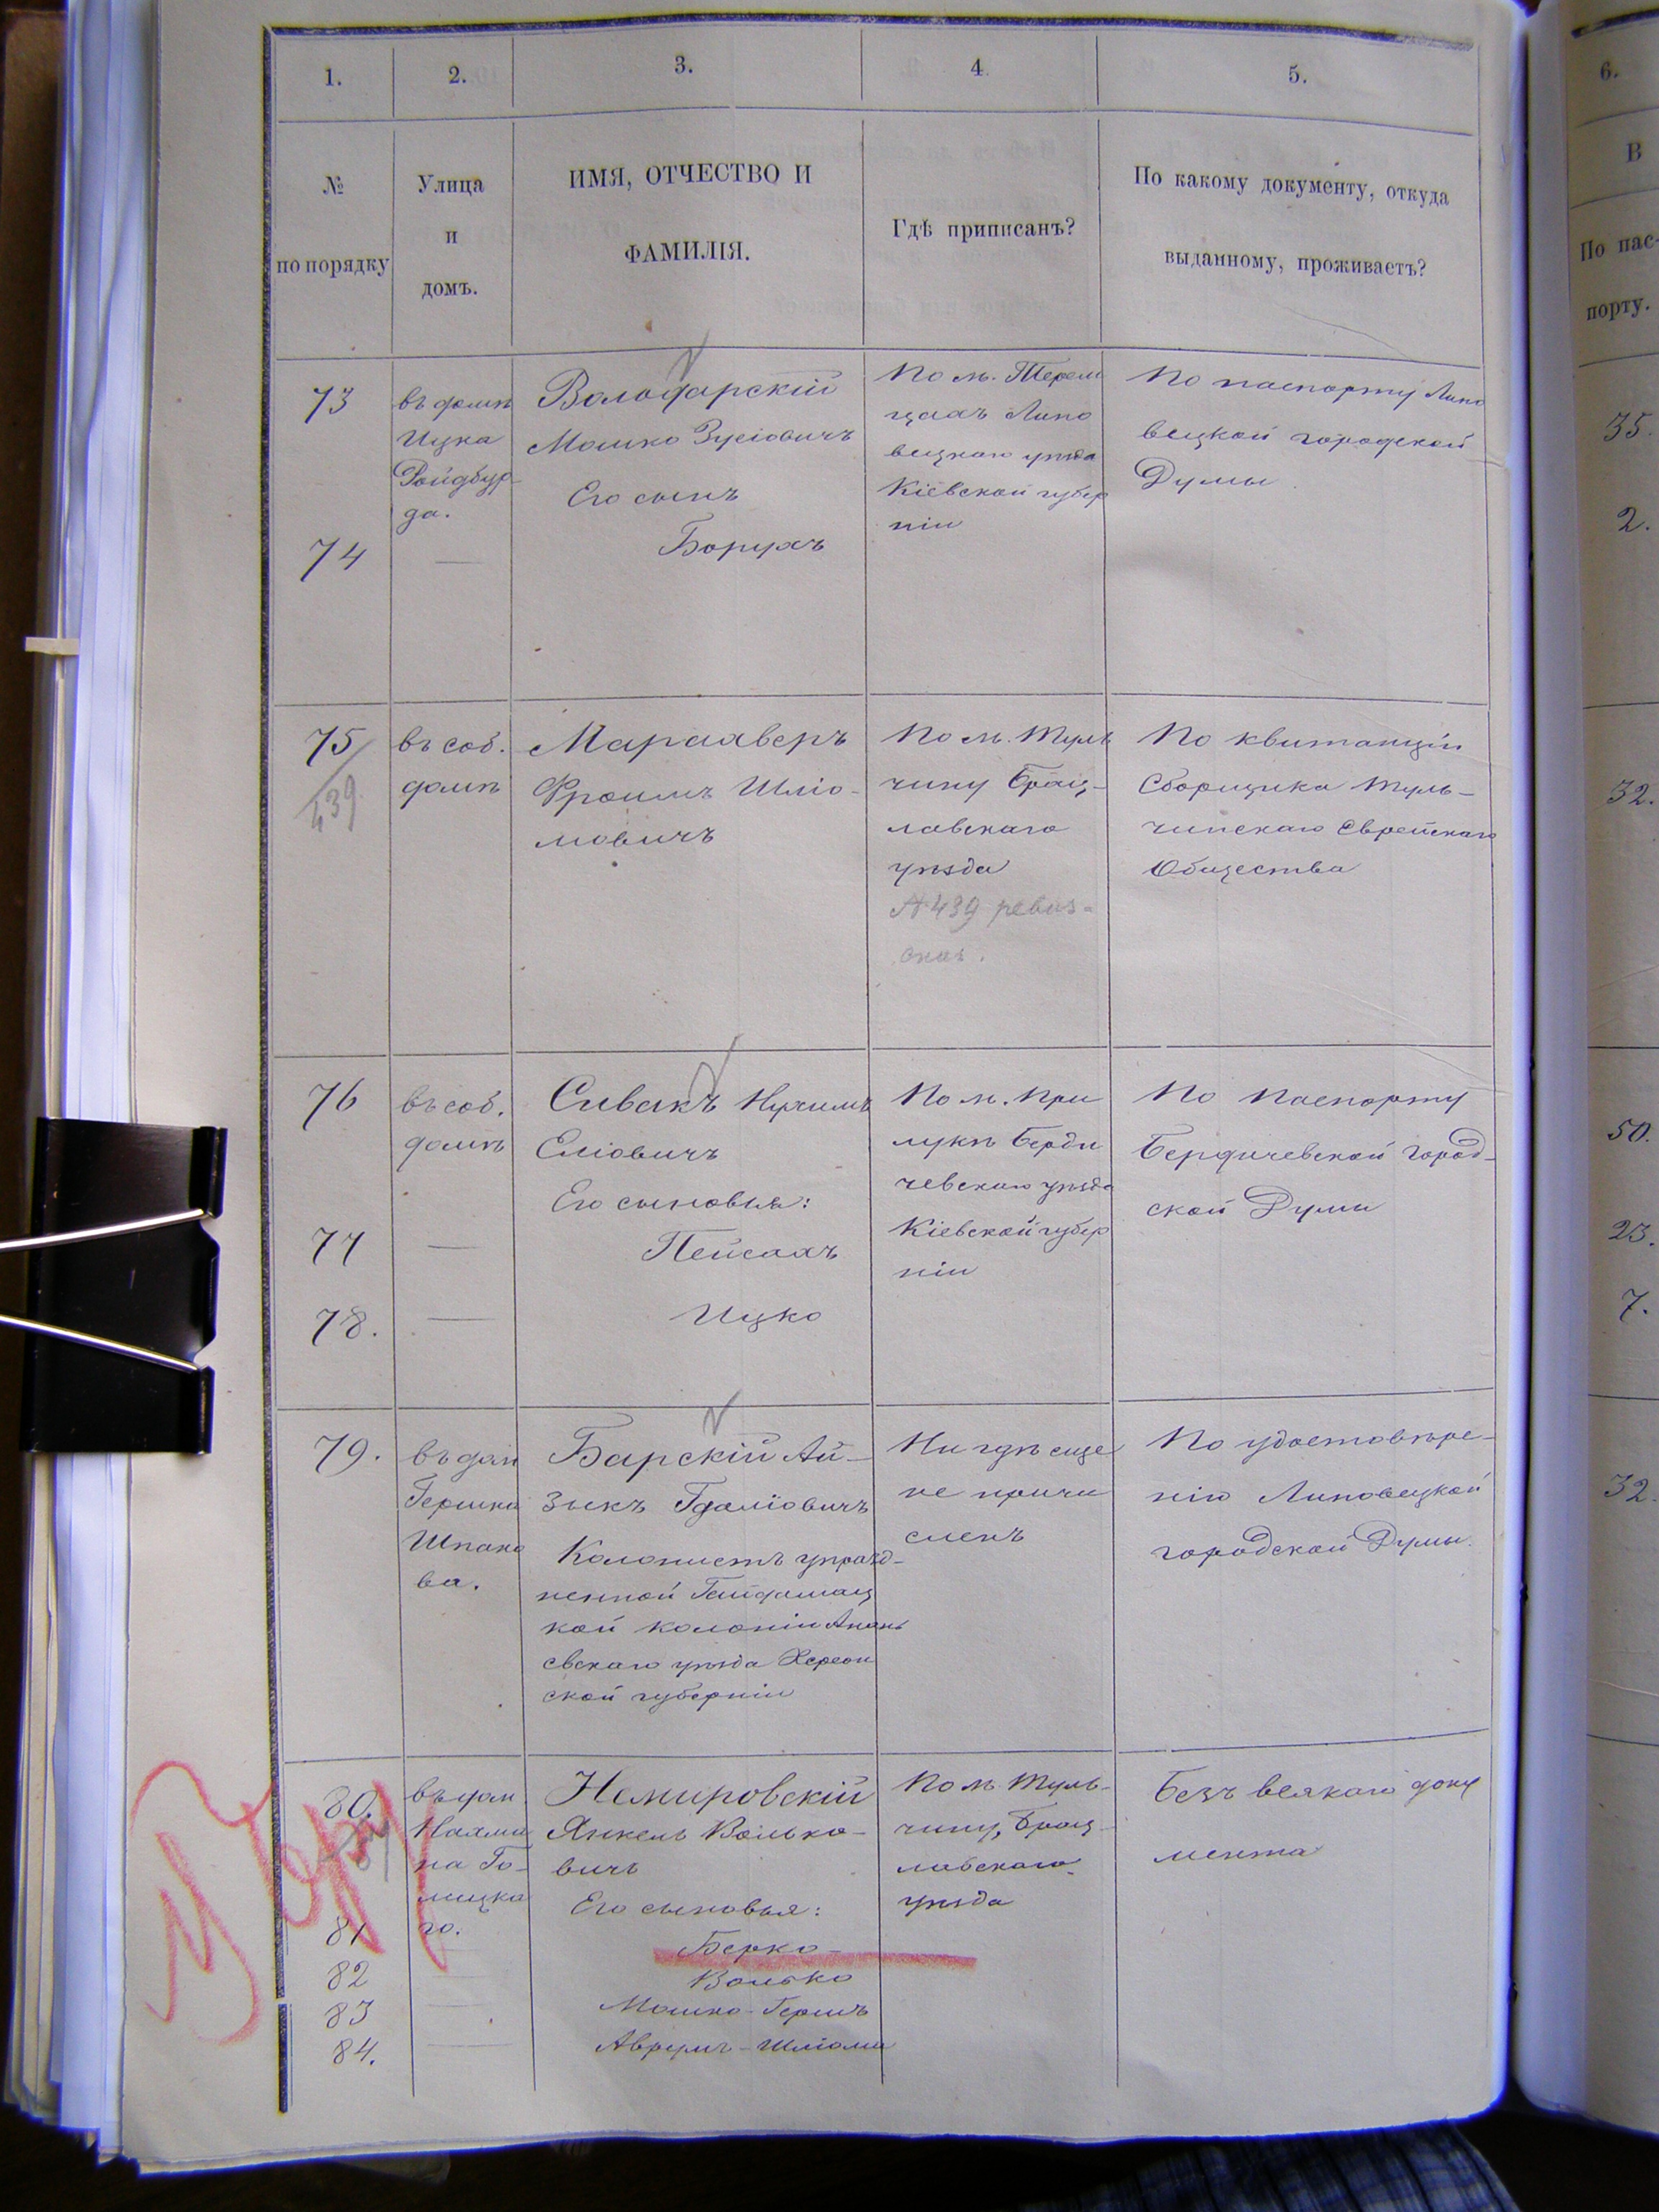 1.
2.
3.
4
5.
№
по порядку
Улица
и
домъ.
ИМЯ, ОТЧЕСТВО И
ФАМИЛІЯ.
Гдѣ приписанъ?
По какому документу, откуда
выданному, проживаетъ?
73
въ домѣ
Ицка
Ройдбур-
да.
Володарскій
Мошко Зусіовичъ
Его сынъ
По м. Терли
цахъ Липо
вецкаго уѣзда
Кіевской губер
ніи
По паспорту Липо
вецкой городской
Думы
74
—
Борухъ
75
439
въ соб.
домѣ
Марахверъ
Фроимъ Шліо-
мовичъ
По м. Туль
чину Брац-
лавскаго
уѣзда
№ 439 ревиз-
скаг.
По квитанціи
Сборщика Туль-
чинскаго Еврейскаго
Общества
76
въ соб.
домѣ
Сивакъ Нухимъ
Еліовичъ
Его сыновья:
По м. При
лукѣ Берди
чевскаго уѣзда
Кіевской губер
ніи
По паспорту
Бердичевской Город-
ской Думы
77
—
Пейсахъ
78.
—
Ицко
79.
въ дом
Гершка
Шпако
ва.
Барскій Ай-
зыкъ Гдаліовичъ
Колонистъ упразд-
ненной Гайдамац
кой колоніи Анань
евскаго уѣзда Херсон
ской губерніи
Ни гдѣ еще
не причи
сленъ
По удостовѣре-
нію Липовецкой
городской Думы.
80.
въ дом
Нахма
на Го-
лицка
го.
Немировскій
Янкель Волько-
вичъ
Его сыновья:
По м Туль-
чину, Брац-
лавскаго
уѣзда
Безъ всякаго доку
мента
81
Берко-
82
Волько
83
Мошко-Гершъ
84.
Аврумъ-Шліома
6.
В
По пас-
порту.
35.
2.
32.
50.
23.
7.
32.